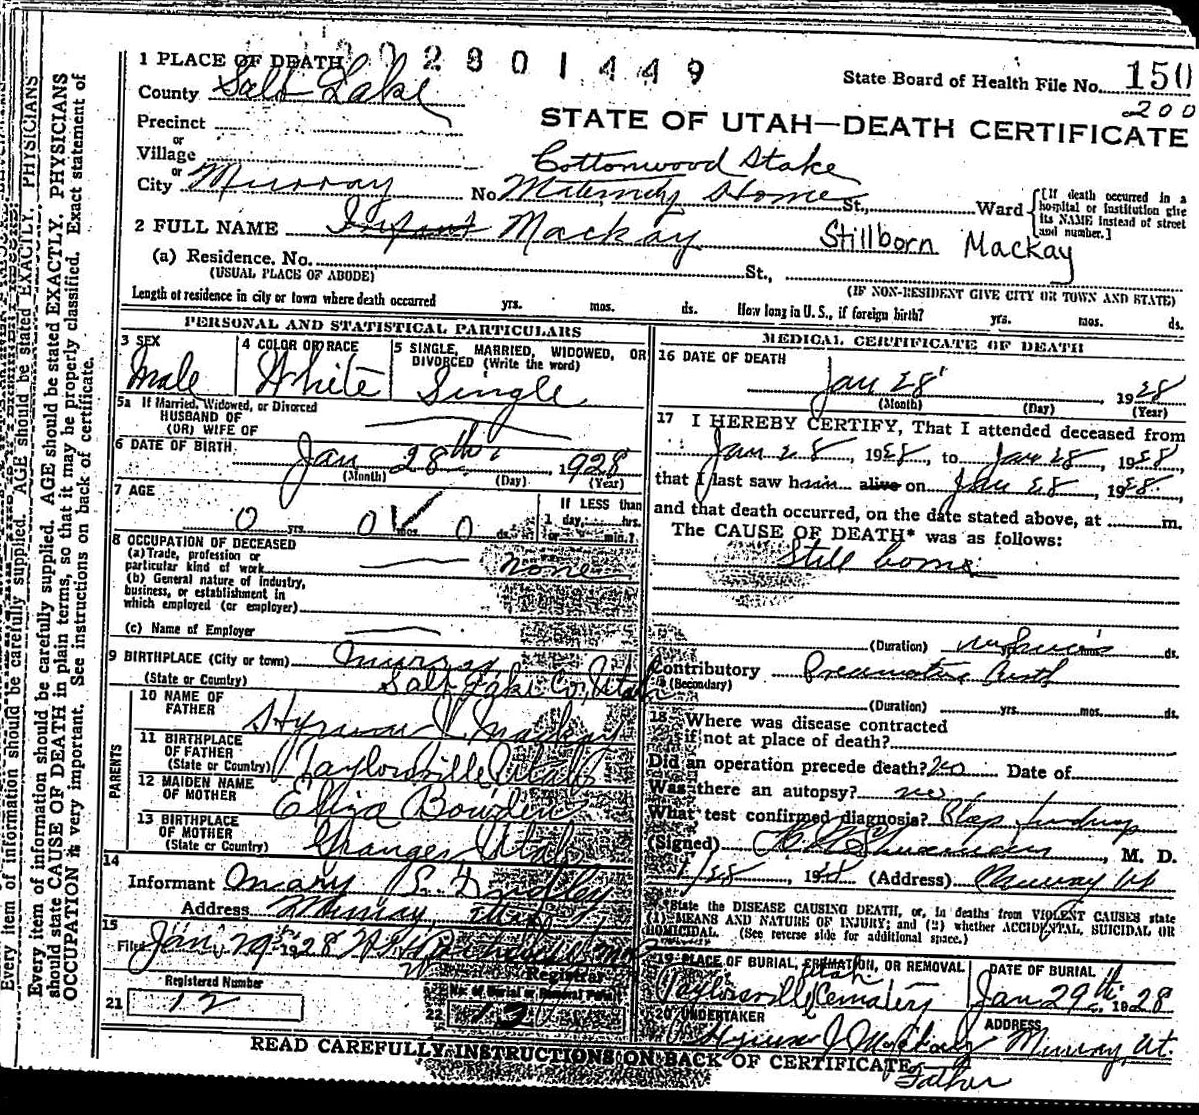 2801449
1 PLACE OF DEATH
State Board of Health File No. 150
200
County Salt Lake
STATE OF UTAH—DEATH CERTIFICATE
Precinct
or
Village
Cottonwood Stake
or
City Murray No. Maternity Home St., Ward
[If death occurred in a hospital or institution give its NAME instead of street and number.]
2 FULL NAME Infant Mackay Stillborn Mackay
(a) Residence. No. St.,
(USUAL PLACE OF ABODE) (IF NON-RESIDENT GIVE CITY OR TOWN AND STATE)
Length of residence in city or town where death occurred yrs. mos. ds. How long in U. S., if foreign birth? yrs. mos. ds.
PERSONAL AND STATISTICAL PARTICULARS
3 SEX
Male
4 COLOR OR RACE
White
5 SINGLE, MARRIED, WIDOWED, OR
DIVORCED (Write the word)
Single
5a If Married, Widowed, or Divorced
HUSBAND OF
(OR) WIFE OF
6 DATE OF BIRTH Jan 28th, 1928
(Month) (Day) (Year)
7 AGE
0 yrs. 0 mos. 0 ds.
If LESS than
1 day, hrs.
or min.?
8 OCCUPATION OF DECEASED
(a) Trade, profession or
particular kind of work none
(b) General nature of industry,
business, or establishment in
which employed (or employer)
(c) Name of Employer
9 BIRTHPLACE (City or town) Murray
(State or Country) Salt Lake Co, Utah
PARENTS
10 NAME OF
FATHER Hyrum J. Mackay
11 BIRTHPLACE
OF FATHER
(State or Country) Taylorsville Utah
12 MAIDEN NAME
OF MOTHER Eliza Bowden
13 BIRTHPLACE
OF MOTHER
(State or Country) Granger Utah
14
Informant Mary E.
Address Murray Utah
15
Filed Jan 29 1928
Registrar
Registered Number
21 12
No. of Burial or Removal Permit
22 13
MEDICAL CERTIFICATE OF DEATH
16 DATE OF DEATH
Jan 28 1928
(Month) (Day) (Year)
17 I HEREBY CERTIFY, That I attended deceased from
Jan 28, 1928, to Jan 28, 1928,
that I last saw h alive on Jan 28, 1928,
and that death occurred, on the date stated above, at m.
The CAUSE OF DEATH* was as follows:
Still born
(Duration) ds.
Contributory Premature birth
(Secondary)
(Duration) yrs. mos. ds.
18 Where was disease contracted
if not at place of death?
Did an operation precede death? no Date of
Was there an autopsy? no
What test confirmed diagnosis?
(Signed) , M. D.
1/28, 1928 (Address) Murray Ut
*State the DISEASE CAUSING DEATH, or, in deaths from VIOLENT CAUSES state
(1) MEANS AND NATURE OF INJURY; and (2) whether ACCIDENTAL, SUICIDAL OR
HOMICIDAL. (See reverse side for additional space.)
19 PLACE OF BURIAL, CREMATION, OR REMOVAL
Utah
Taylorsville Cemetery
DATE OF BURIAL
Jan 29th 1928
20 UNDERTAKER
Hyrum J. Mackay
ADDRESS
Murray, Ut.
Father
READ CAREFULLY INSTRUCTIONS ON BACK OF CERTIFICATE
Every item of information should be carefully supplied. AGE should be stated EXACTLY. PHYSICIANS
should state CAUSE OF DEATH in plain terms, so that it may be properly classified. Exact statement of
OCCUPATION is very important. See instructions on back of certificate.